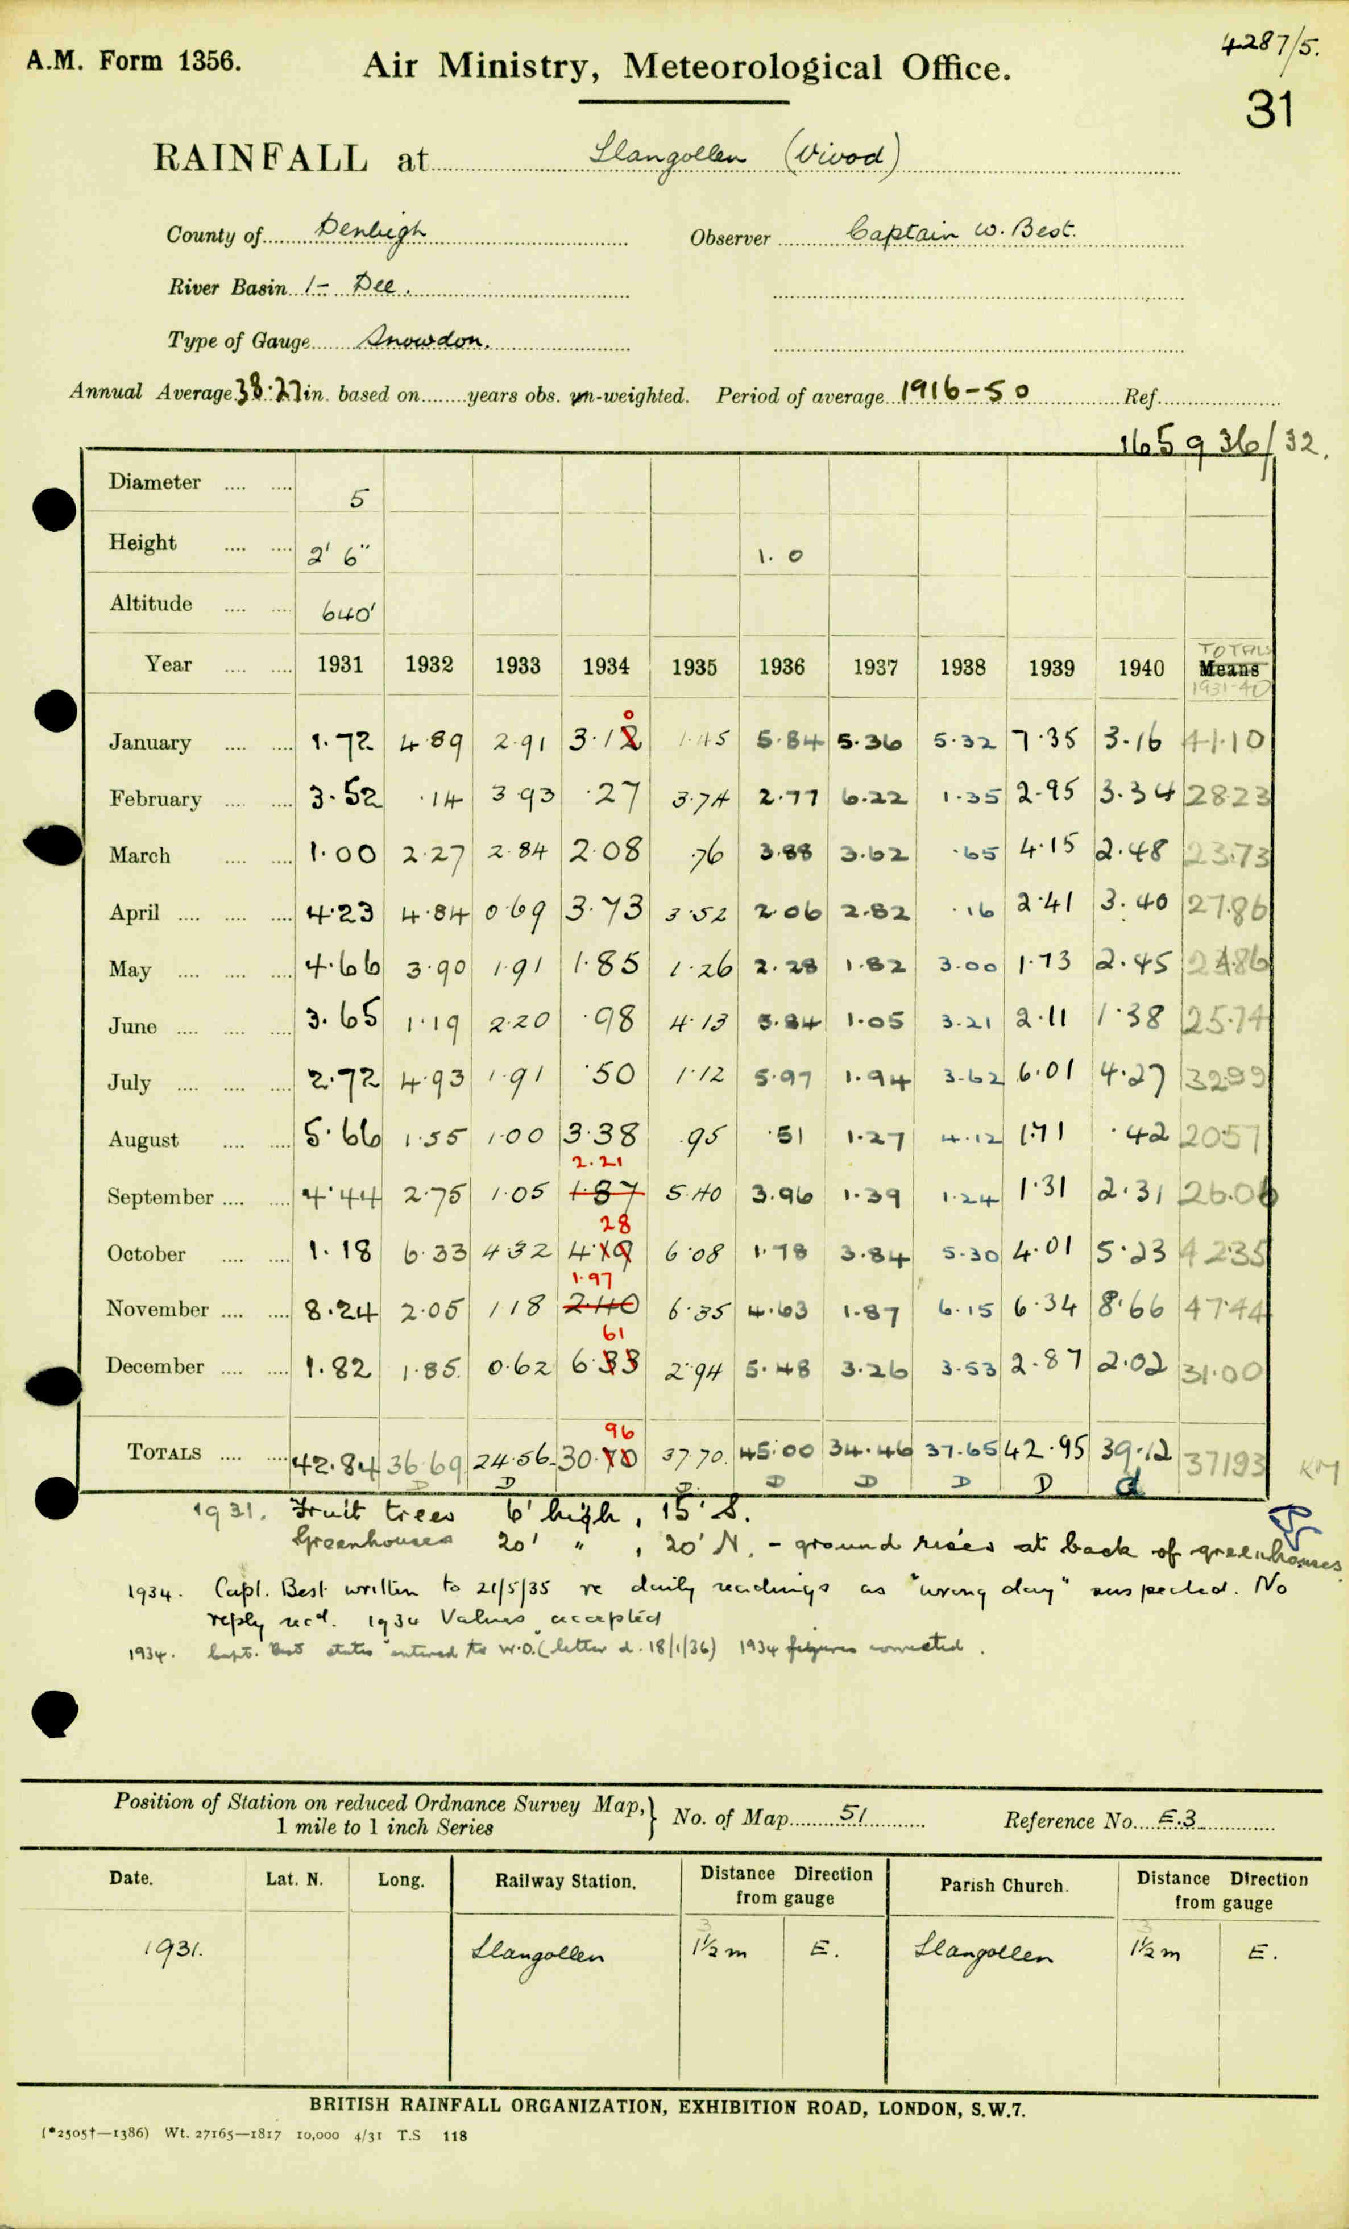 4287/5.
A.M. Form 1356. Air Ministry, Meteorological Office.
31
RAINFALL at Llangollen (Vivod)
County of Denbigh Observer Captain W. Best.
River Basin 1- Dee.
Type of Gauge Snowdon.
Annual Average 38.27 in. based on years obs. un-weighted. Period of average 1916-50 Ref.
165936/32.
Diameter 5
Height 2' 6" 1.0
Altitude 640'
TOTALS
Year 1931 1932 1933 1934 1935 1936 1937 1938 1939 1940 Means
1931-40
January 1.72 4.89 2.91 3.12 0 1.45 5.84 5.36 5.32 7.35 3.16 41.10
February 3.52 .14 3.93 .27 3.74 2.77 6.22 1.35 2.95 3.34 28.23
March 1.00 2.27 2.84 2.08 .76 3.88 3.62 .65 4.15 2.48 23.73
April 4.23 4.84 0.69 3.73 3.52 2.06 2.82 .16 2.41 3.40 27.86
May 4.66 3.90 1.91 1.85 1.26 2.28 1.82 3.00 1.73 2.45 24.86
June 3.65 1.19 2.20 .98 4.13 5.84 1.05 3.21 2.11 1.38 25.74
July 2.72 4.93 1.91 .50 1.12 5.97 1.94 3.62 6.01 4.27 32.99
August 5.66 1.55 1.00 3.38 .95 .51 1.27 4.12 1.71 .42 20.57
2.21
September 4.44 2.75 1.05 1.87 5.40 3.96 1.39 1.24 1.31 2.31 26.06
28
October 1.18 6.33 4.32 4.19 6.08 1.78 3.84 5.30 4.01 5.23 42.35
1.97
November 8.24 2.05 1.18 2.40 6.35 4.63 1.87 6.15 6.34 8.66 47.44
61
December 1.82 1.85 0.62 6.33 2.94 5.48 3.26 3.53 2.87 2.02 31.00
96
TOTALS 42.84 36.69 24.56 30.70 37.70 45.00 34.46 37.65 42.95 39.12 371.93 KM
D D D D D D D d
1931. Fruit trees 6' high, 15' S.
Greenhouses 20' " , 20' N. - ground rises at back of greenhouses.
1934. Capt. Best written to 21/5/35 re daily readings as "wrong day" suspected. No
reply recd. 1934 Values accepted
1934. Capt. Best states entered to W.O. (letter d. 18/1/36) 1934 figures corrected.
Position of Station on reduced Ordnance Survey Map, 1 mile to 1 inch Series } No. of Map 51 Reference No. E.3
Date. Lat. N. Long. Railway Station. Distance Direction from gauge Parish Church. Distance Direction from gauge
3 3
1931. Llangollen 1½ m E. Llangollen 1½ m E.
BRITISH RAINFALL ORGANIZATION, EXHIBITION ROAD, LONDON, S.W.7.
(*2505†—1386) Wt. 27165—1817 10,000 4/31 T.S 118